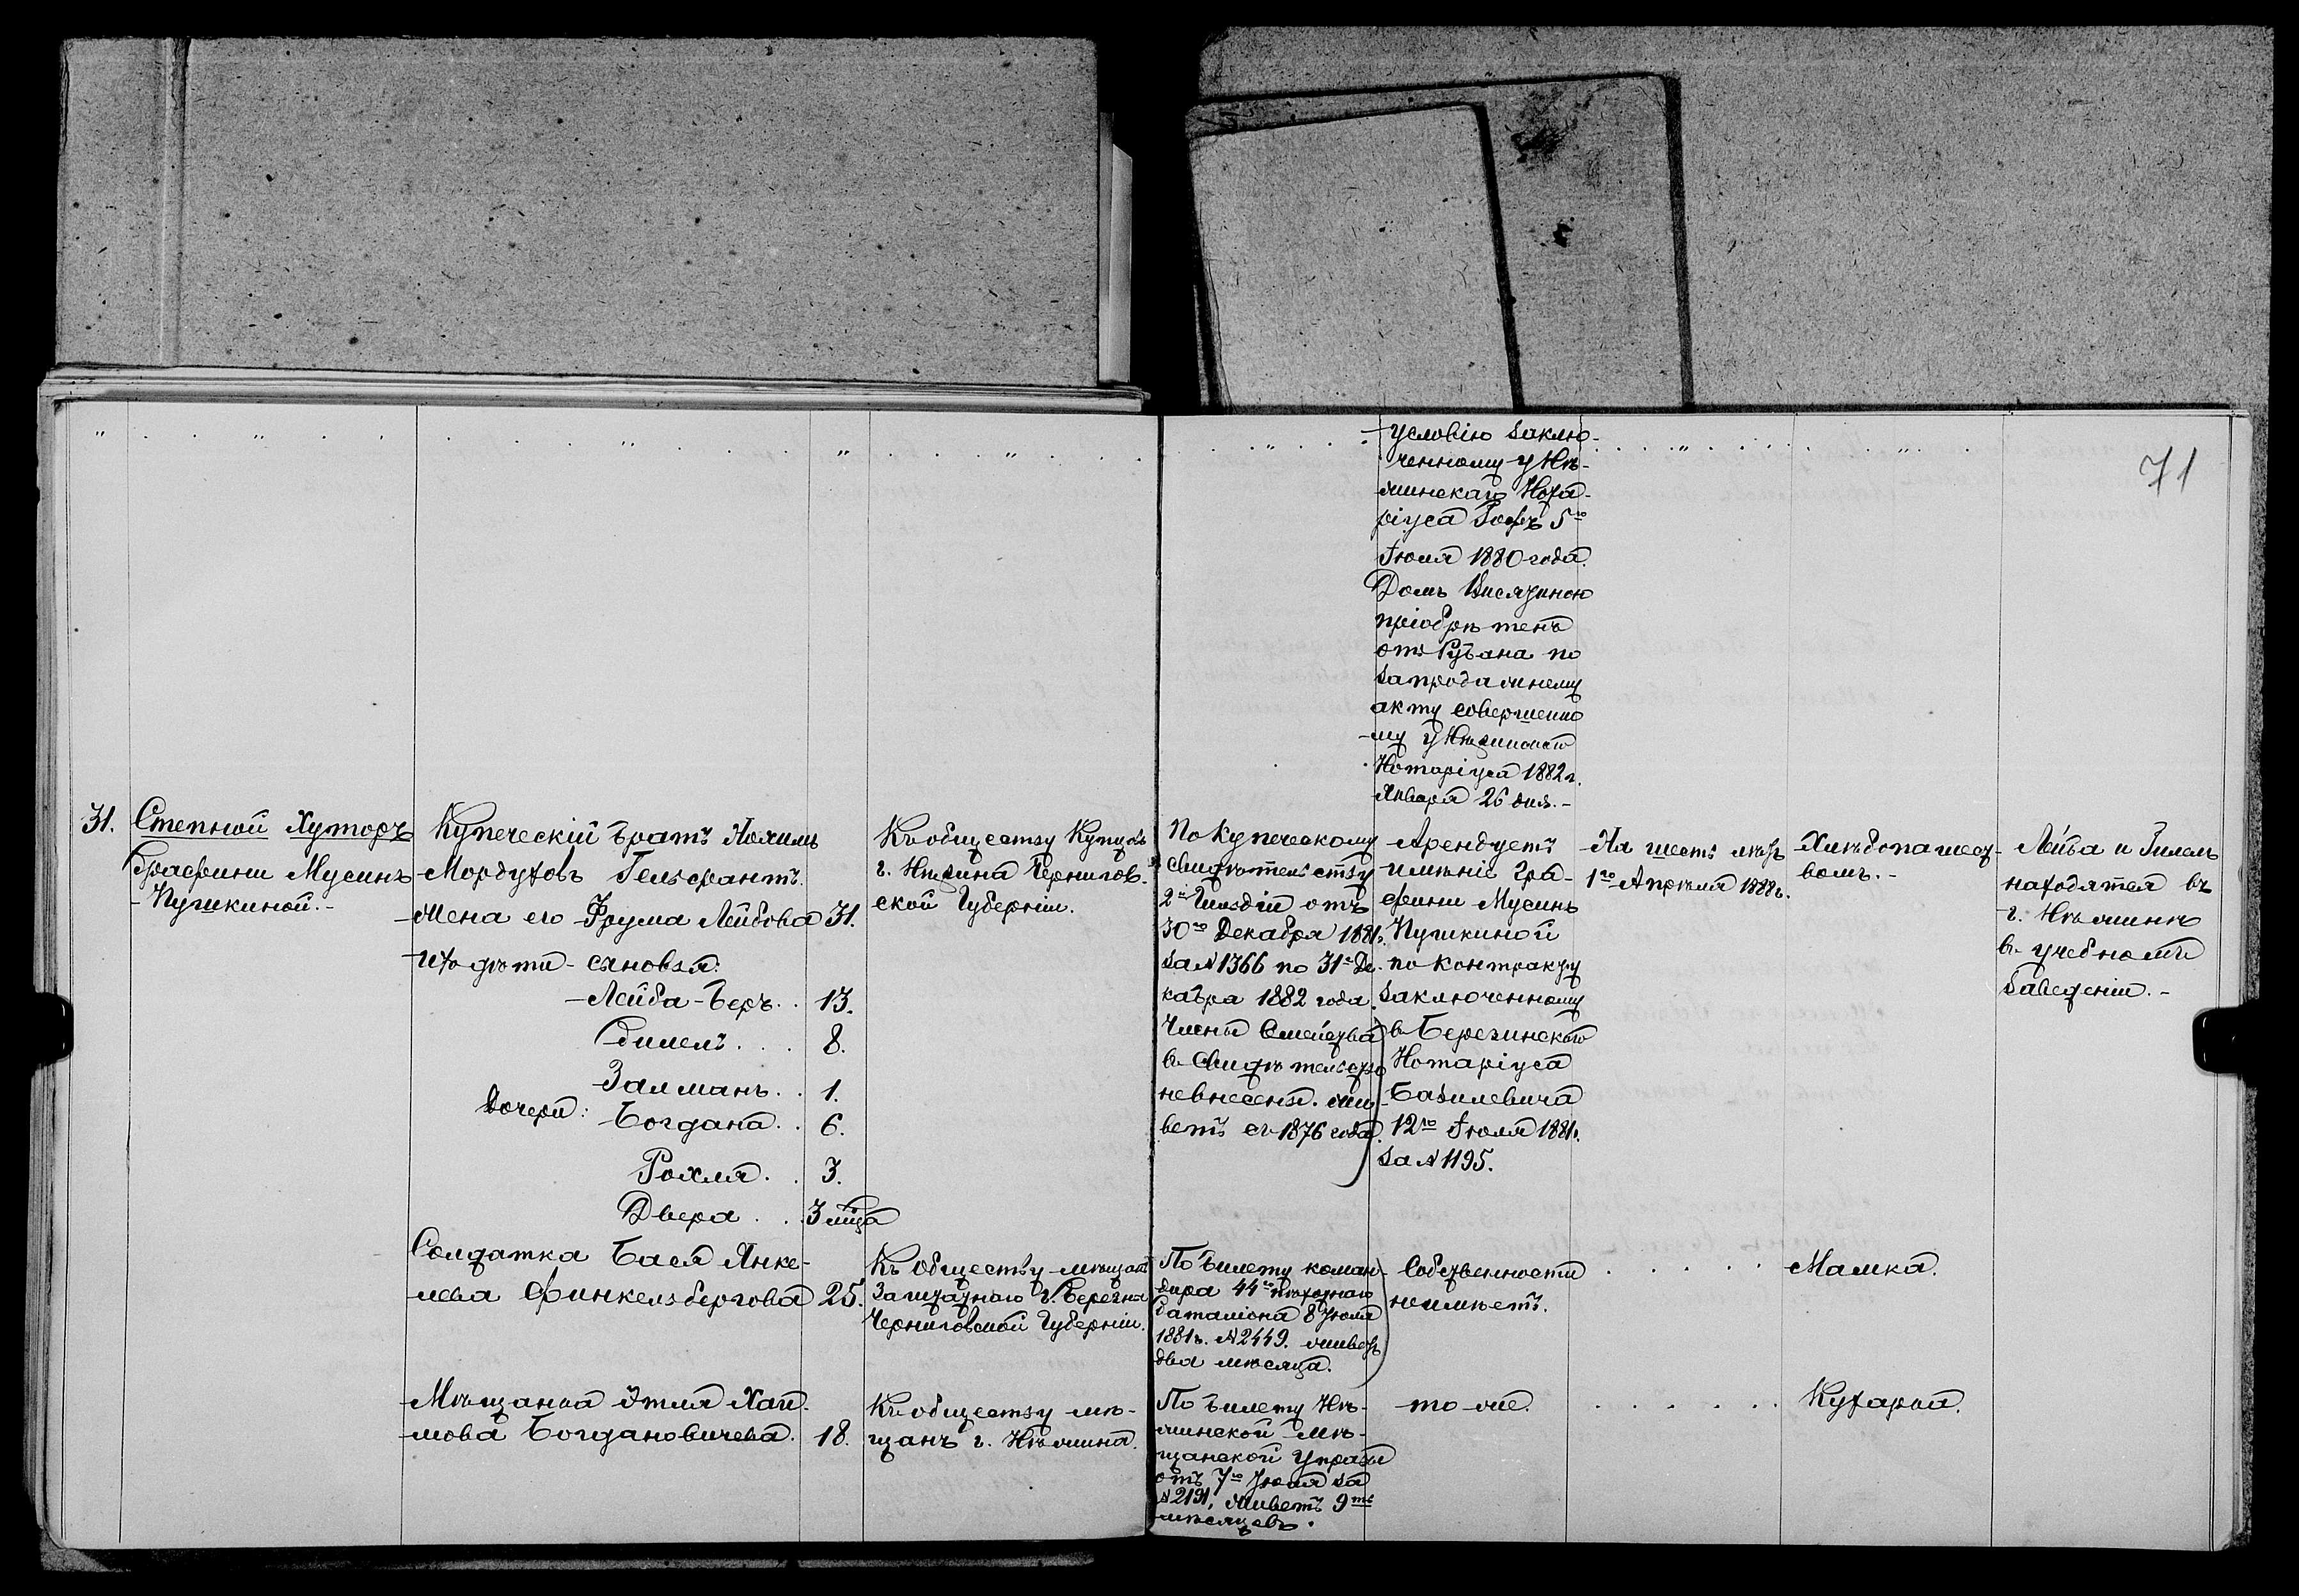 71
условію заклю-
ченному у Нѣ-
жинскаго Нота-
ріуса 5го
Іюля 1880 года.
Домъ
пріобрѣтенъ
отъ Рубана по
запродажнему
акту совершенно
му у Нѣжинскаго
Нотаріуса 1882 г.
Января 26 дня.-
31.
Степной Хуторъ
Графини Мусинъ
-Пушкиной.-
Купеческій братъ Нохимъ
Мордуховъ Гельфантъ.
жена его Фрума Лейбова 31.
ихъ дѣти - сыновья:
Лейба-Беръ. . 13.
Гилель . . . 8.
Залманъ. . 1.
дочери: Богдана. . 6.
Рохля. . 3.
Двера . . 3 мца
Къ обществу Купцовъ
г. Нѣжина Чернигов-
ской Губерніи.
По купеческому
свидѣтельству
2й Гильдіи отъ
30го Декабря 1881 г.
за N 1366 по 31е Де-
кабра 1882 года.
Члены Семейства
въ свидѣтельство
невнесены. жи-
ветъ съ 1876 года.
Арендуетъ
имѣніе Гра-
фини Мусинъ
Пушкиной
по контракту
заключенному
въ Березинскаго
Нотаріуса
Базилевича
12го Іюля 1881 г.
за N 1195.
На шесть лѣтъ
1го Апрѣля 1888 г.
Хлѣбопашест-
вомъ.-
Лейба и Гилель
находятся въ
г. Нѣжинѣ
въ учебномъ
заведеніи.-
Солдатка Бася Янке-
лева Финкельзбергова 25.
Къ Обществу мѣщанъ
Заштатнаго г. Березна
Черниговской Губерніи.
По билету коман-
дира 44го пѣхотнаго
баталіона 8 Іюля
1881 г. N 2449. живетъ
два мѣсяца.
Собственности
неимѣетъ.
Мамка.
Мѣщанка Этля Хаи-
мова Богдановичева. 18.
Къ обществу мѣ-
щанъ г. Нѣжина.
По билету Нѣ-
жинской Мѣ-
щанской Управы
отъ 7го Іюля за
N 2191, живетъ 9ть
мѣсяцевъ.
то же.
Кухарка.